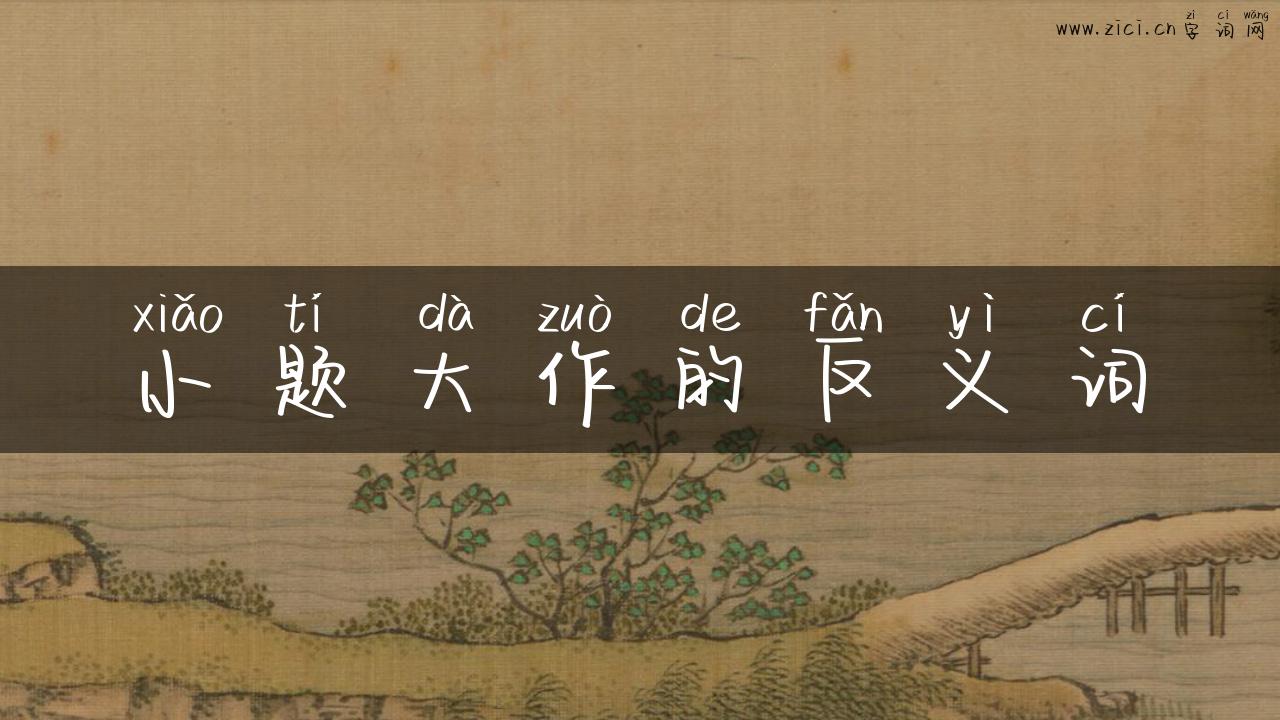 zì cí wǎng
www.zici.cn 字 词 网
xiǎo tí dà zuò de fǎn yì cí
小 题 大 作 的 反 义 词